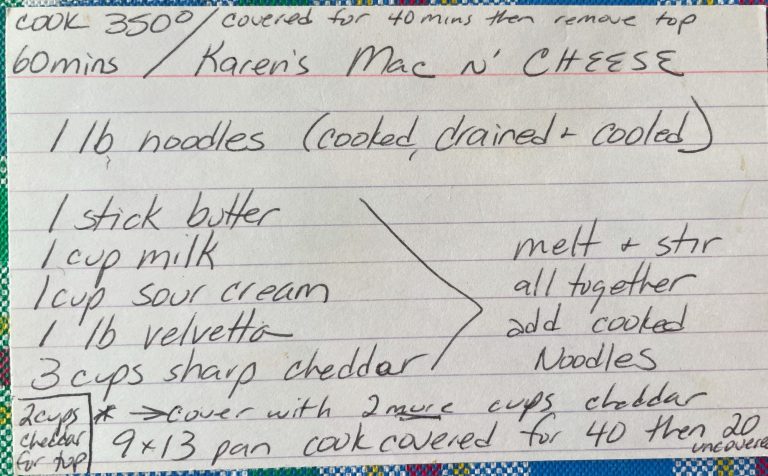 COOK 350° / covered for 40 mins then remove top
60 mins / Karen's Mac N' CHEESE
1 lb noodles (cooked, drained + cooled)
1 stick butter
1 cup milk
1 cup sour cream
1 lb velvetta
3 cups sharp cheddar
melt + stir
all together
add cooked
Noodles
2 cups
cheddar
for top
* → cover with 2 more cups cheddar
9x13 pan cook covered for 40 then 20
uncovered